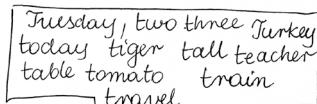 Tuesday, two three Turkey
today tiger tall teacher
table tomato train
travel